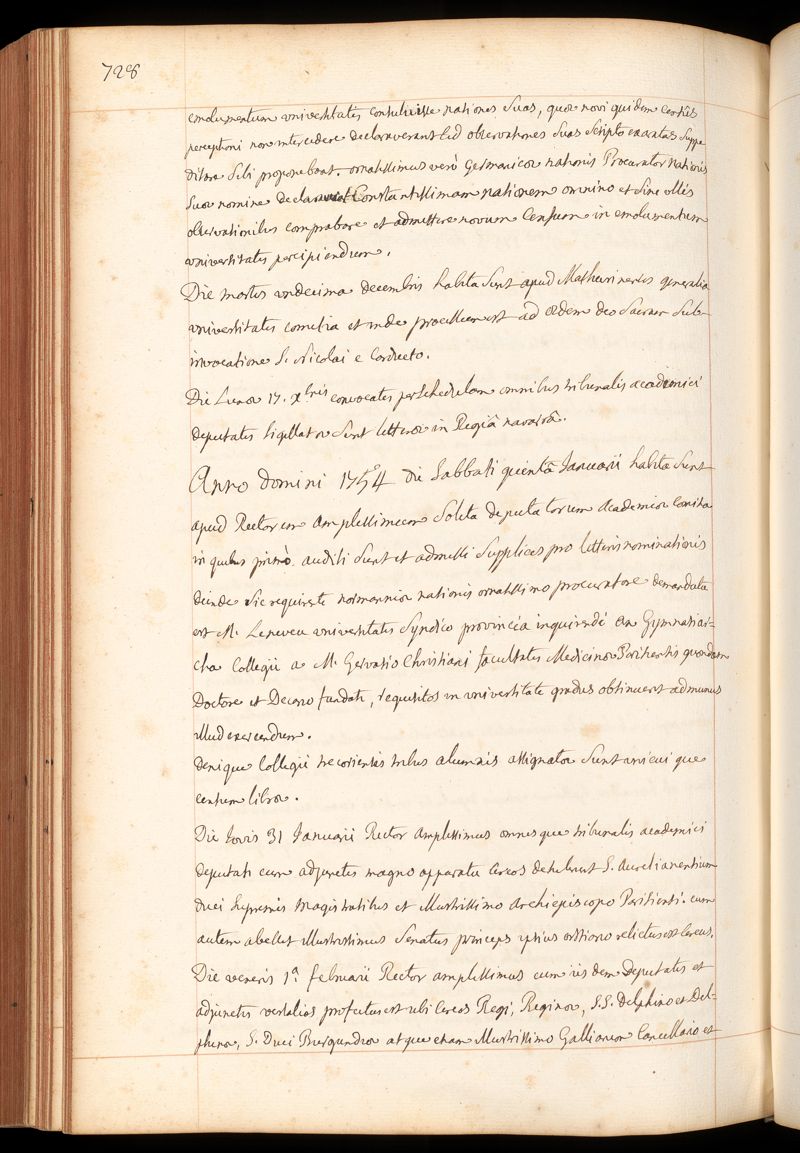 728
emolumentum universitatis consuluisse nationes suas, quae novi quidem census
perceptioni non intercedere declaraverant sed observationes suas scripto exaratas suppe
ditare sibi proponebant. ornatissimus verò Germanicae nationis Procurator nationis
suae nomine declaravit Constantissimam nationem omnino et sine ullis
observationibus comprobare et admittere novum censum in emolumentum
universitatis percipiendum.
Die martis undecima decembris habita sunt apud Mathurinenses generalia
universitatis comitia et inde processum est ad aedem deo sacram sub
invocatione S. Nicolai e Carducto.
Die Lunae 17. Xbris convocatis per schedulam omnibus tribunalis academici
deputatis sigillatae sunt litterae in Regiâ navarrâ.
Anno domini 1754 die Sabbati quintâ Januarii habita sunt
apud Rectorem amplissimum solita deputatorum academiae comitia
in quibus primò auditi sunt et admissi supplices pro litteris nominationis
deinde sic requirente normanniae nationis ornatissimo procuratore demandata
est M. Leneveu universitatis Syndico provincia inquirendi an Gymnasiar=
cha Collegii a M. Gervasio Christiani facultatis Medicinae Parisiensis quondam
Doctore et Decano fundati, requisitos in universitate gradus obtinuerit ad munus
illud exercendum.
Denique Collegii trecorensis tribus alumnis assignatae sunt unicuique
centum librae.
Die Jovis 31 Januarii Rector amplissimus omnesque tribunalis academici
deputati cum adjunctis magno apparatu cereos detulerunt S. Aurelianensium
duci supremis magistratibus et illustrissimo archiepiscopo Parisiensi. cum
autem abesset illustrissimus Senatus princeps ipsius ostiario relictus est cereus.
Die veneris 1ª. februarii Rector amplissimus cum iisdem Deputatis et
adjunctis versalias profectus est ubi cereos Regi, Reginae, S.S. Delphino et Del=
phinae, S. Duci Burgundiae atque etiam illustrissimo Galliarum Cancellario et